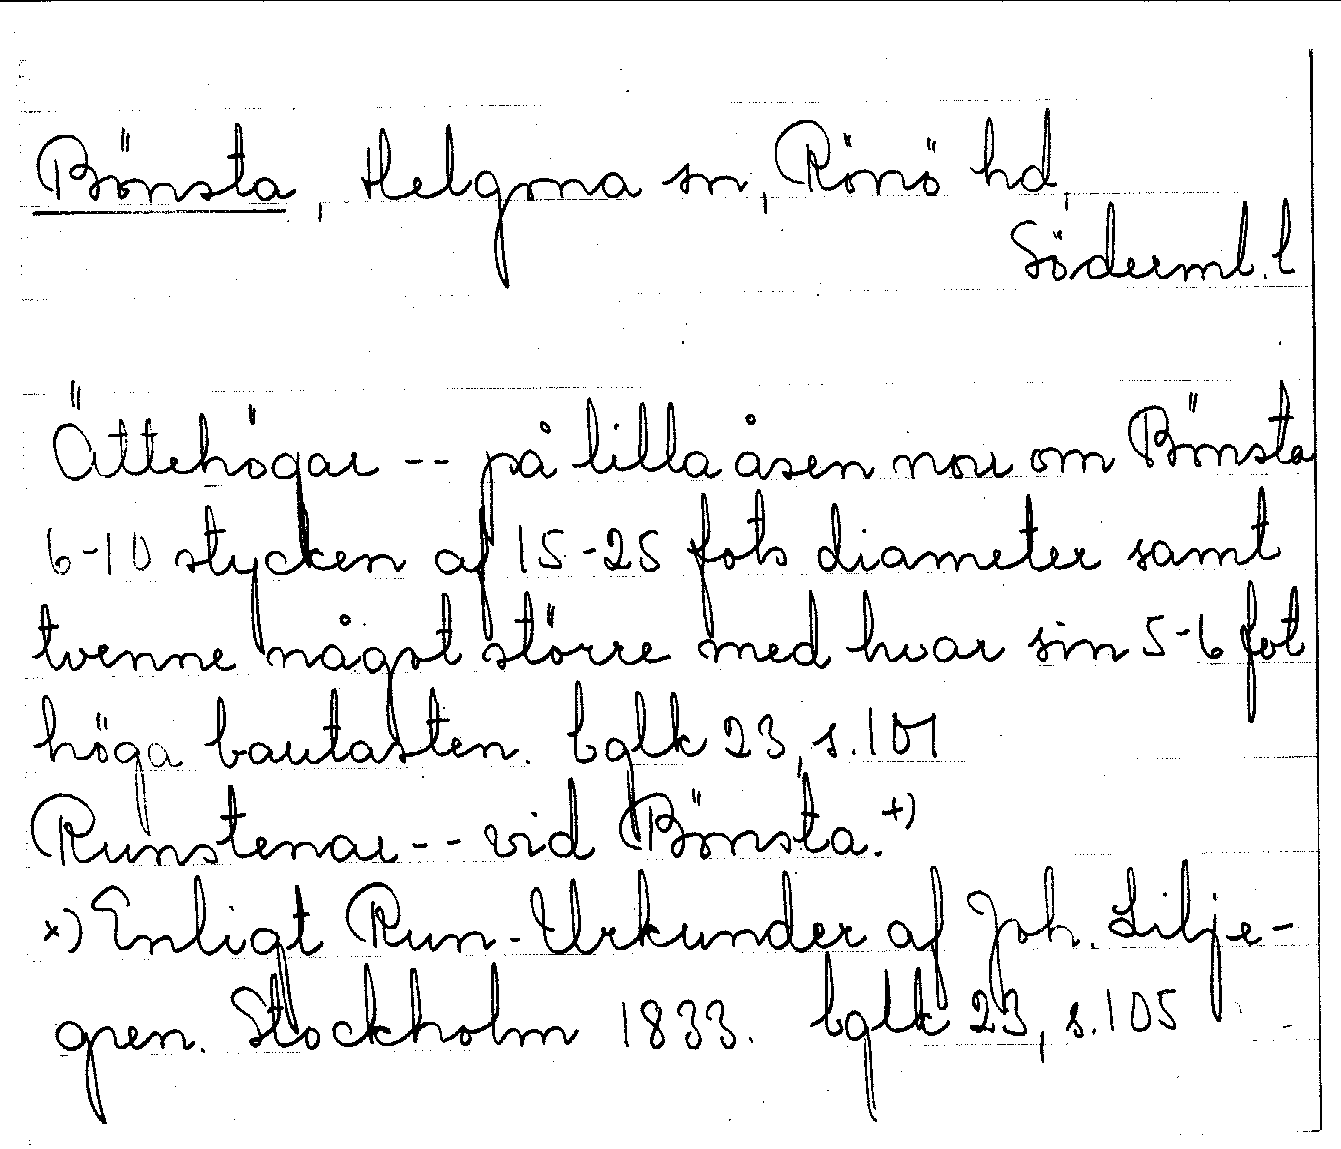 Bönsta, Helgona sn, Rönö hd,
Söderml. l
Ättehögar -- på lilla åsen norr om Bönsta
6-10 stycken af 15-25 fots diameter samt
tvenne något större med hvar sin 5-6 fot
höga bautasten. bglk 23, s. 101
Runstenar -- vid Bönsta. +)
x) Enligt Run-Urkunder af Joh. Lilje-
gren. Stockholm 1833. bglk 23, s. 105